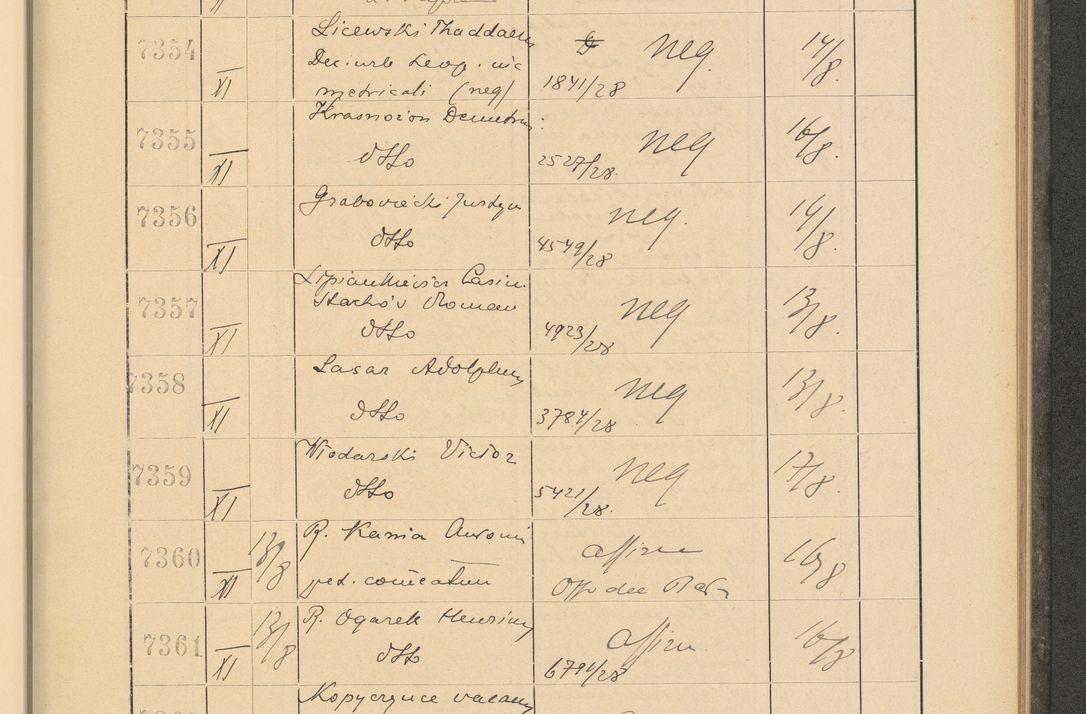 7354 XI Licewski Thaddaeus neg. 14/8.
Dec. urb. Leop. sic
metricali (neg) 1841/28
7355 XI Krasnozon Demetrius neg 16/8.
dtto 2527/28.
7356 XI Grabowiecki Justyn neg. 14/8.
dtto 4549/28
7357 XI Lipiankiewicz Casim.
Stachów Roman neg 13/8.
dtto 4923/28
7358 XI Lasar Adolphus neg 13/8.
dtto 3784/28
7359 XI Włodarski Victor neg 17/8.
dtto 5421/28.
7360 XI 13/8 R. Kania Antoni affirm 16/8
pet.
7361 XI 13/8 R. Ogarek Henricus affirm 16/8
dtto 6791/28
Kopyczynce vacans